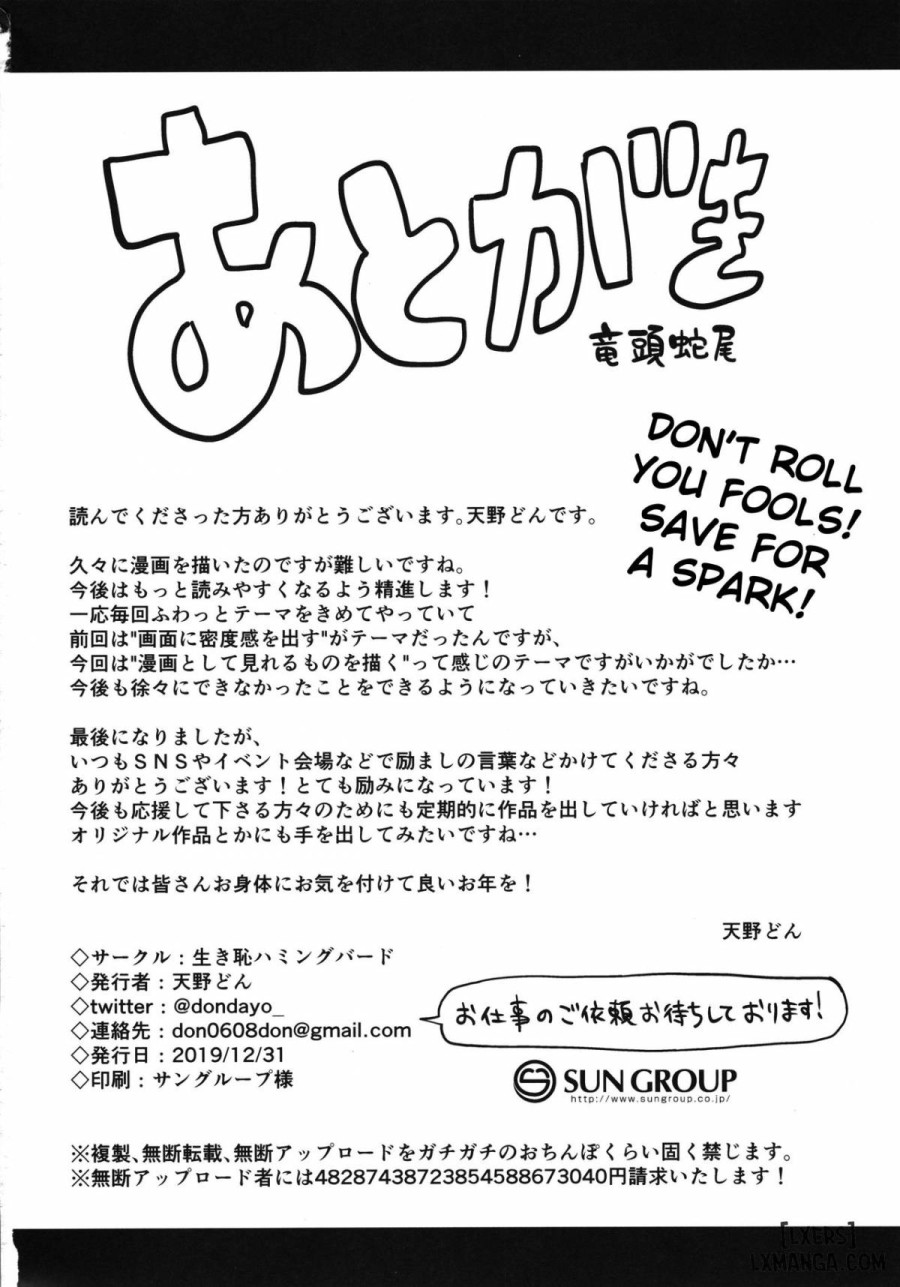 あとがき
竜頭蛇尾
DON'T ROLL
YOU FOOLS!
SAVE FOR
A SPARK!
読んでくださった方ありがとうございます。天野どんです。
久々に漫画を描いたのですが難しいですね。
今後はもっと読みやすくなるよう精進します!
一応毎回ふわっとテーマをきめてやっていて
前回は"画面に密度感を出す"がテーマだったんですが、
今回は"漫画として見れるものを描く"って感じのテーマですがいかがでしたか…
今後も徐々にできなかったことをできるようになっていきたいですね。
最後になりましたが、
いつもSNSやイベント会場などで励ましの言葉などかけてくださる方々
ありがとうございます!とても励みになっています!
今後も応援して下さる方々のためにも定期的に作品を出していければと思います
オリジナル作品とかにも手を出してみたいですね…
それでは皆さんお身体にお気を付けて良いお年を!
天野どん
◇サークル:生き恥ハミングバード
◇発行者:天野どん
◇twitter:@dondayo_
◇連絡先:don0608don@gmail.com
◇発行日:2019/12/31
◇印刷:サングループ様
お仕事のご依頼お待ちしております!
SUN GROUP
http://www.sungroup.co.jp/
※複製、無断転載、無断アップロードをガチガチのおちんぽくらい固く禁じます。
※無断アップロード者には48287438723854588673040円請求いたします!
[LXERS]
LXMANGA.COM